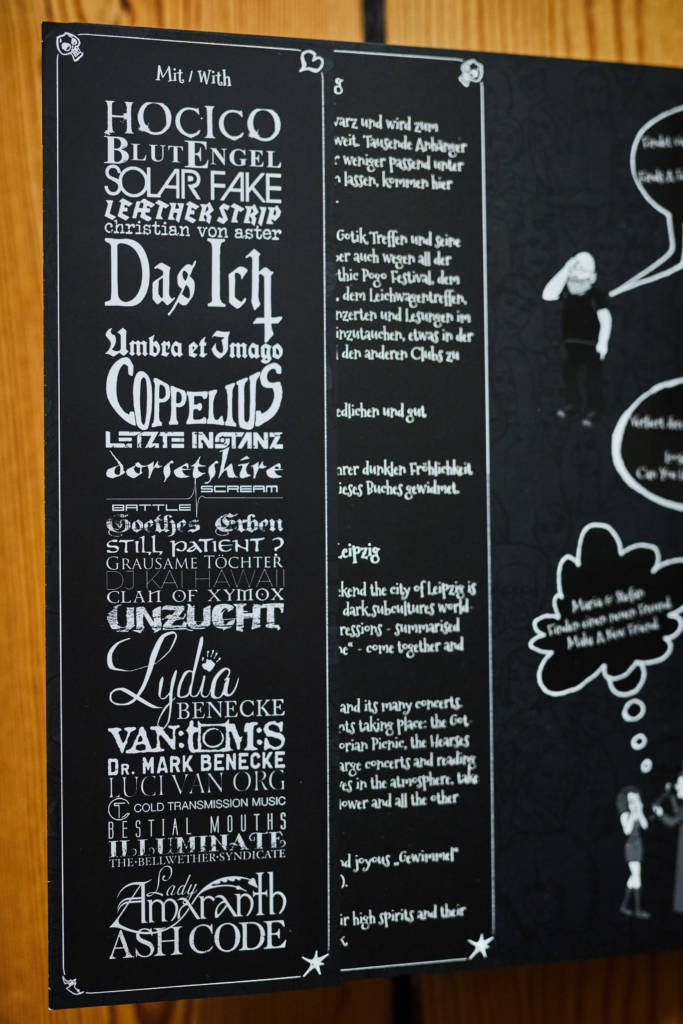 Mit / With
HOCICO
BLUTENGEL
SOLAR FAKE
LEÆTHER STRIP
christian von aster
Das Ich
Umbra et Imago
COPPELIUS
LETZTE INSTANZ
dorsetshire
SCREAM
BATTLE
Goethes Erben
STILL PATIENT?
GRAUSAME TÖCHTER
DJ KAI HAWAII
CLAN OF XYMOX
UNZUCHT
Lydia
BENECKE
DR. MARK BENECKE
LUCI VAN ORG
COLD TRANSMISSION MUSIC
BESTIAL MOUTHS
ILLUMINATE
THE·BELLWETHER·SYNDICATE
Lady
Amaranth
ASH CODE
g
warz und wird zum
weit. Tausende Anhänger
r weniger passend unter
n lassen, kommen hier
.
Gotik Treffen und seine
er auch wegen all der
thic Pogo Festival, dem
, dem Leichwagentreffen,
nzerten und Lesungen im
inzutauchen, etwas in der
d den anderen Clubs zu
edlichen und gut
hrer dunklen Fröhlichkeit
ieses Buches gewidmet.
Leipzig
ekend the city of Leipzig is
dark subcultures world-
ressions - summarised
e" - come together and
and its many concerts.
nts taking place: the Got-
orian Picnic, the Hearses
arge concerts and reading
es in the atmosphere, take
ower and all the other
nd joyous „Gewimmel"
).
ir high spirits and their
Maria & Stefan
Finden einen neuen Freund
Make A New Friend